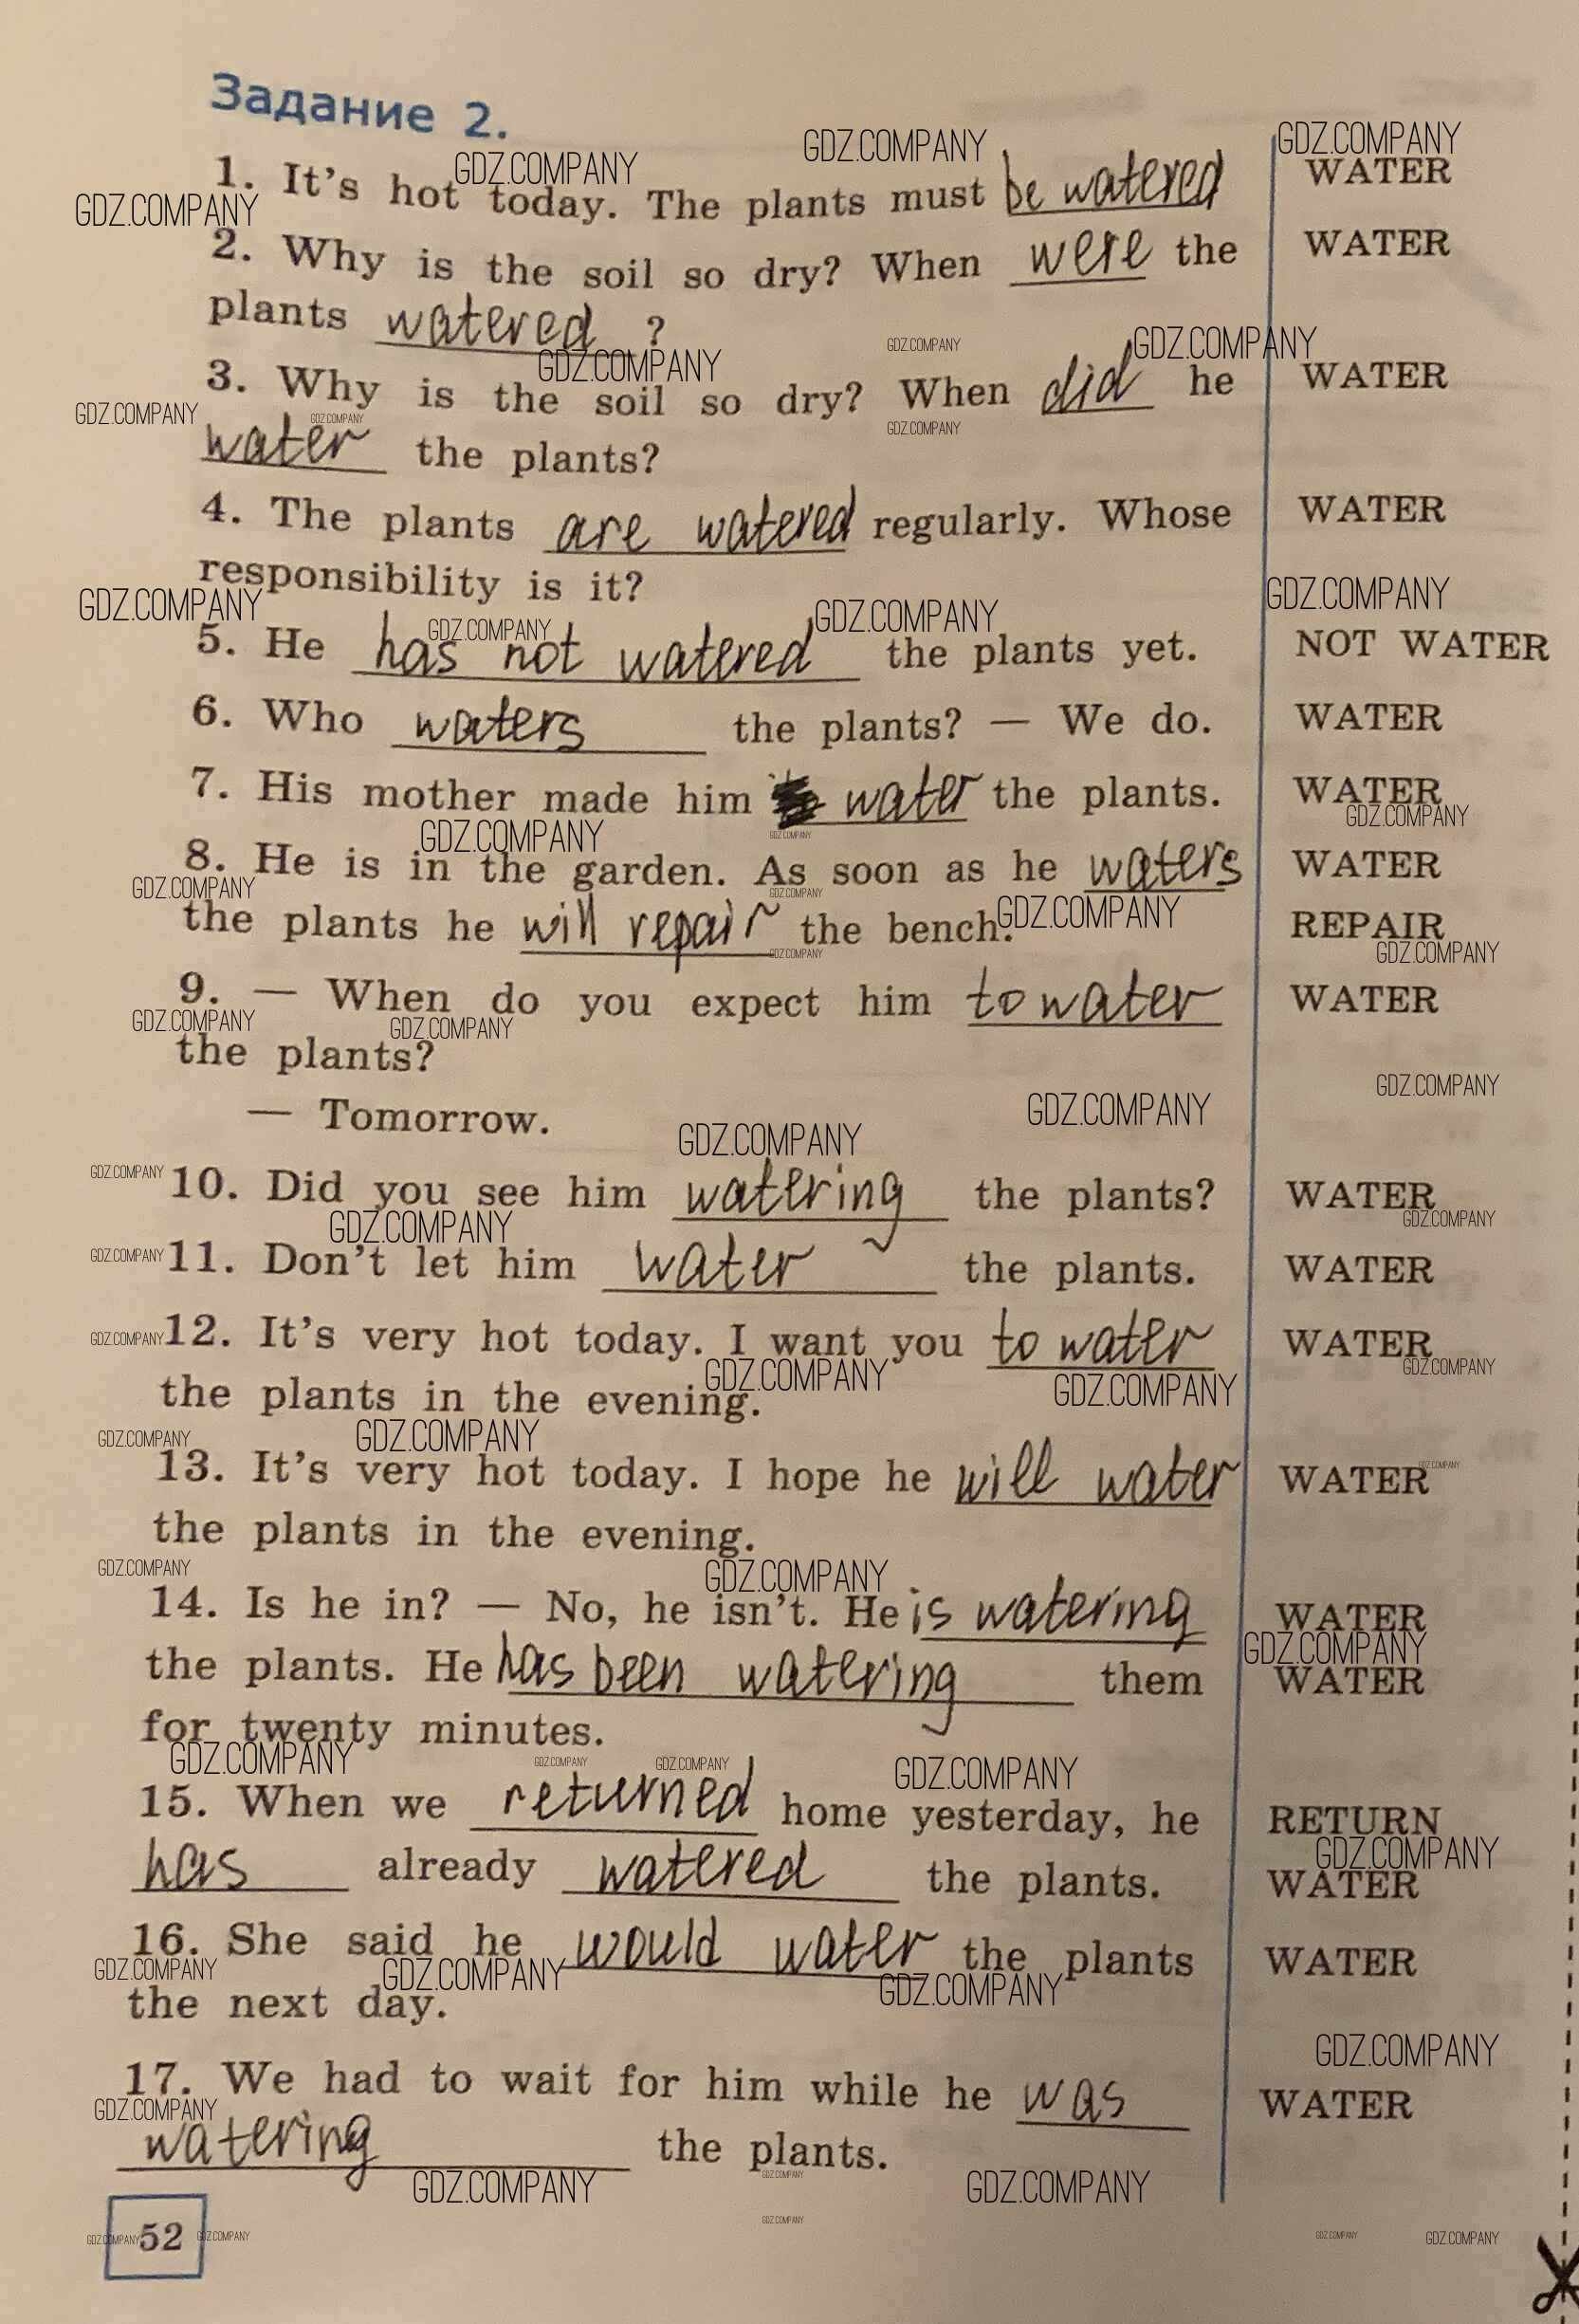 Задание 2.
1. It's hot today. The plants must be watered WATER
2. Why is the soil so dry? When were the WATER
plants watered ?
3. Why is the soil so dry? When did he WATER
water the plants?
4. The plants are watered regularly. Whose WATER
responsibility is it?
5. He has not watered the plants yet. NOT WATER
6. Who waters the plants? — We do. WATER
7. His mother made him water the plants. WATER
8. He is in the garden. As soon as he waters WATER
the plants he will repair the bench. REPAIR
9. — When do you expect him to water WATER
the plants?
— Tomorrow.
10. Did you see him watering the plants? WATER
11. Don't let him water the plants. WATER
12. It's very hot today. I want you to water WATER
the plants in the evening.
13. It's very hot today. I hope he will water WATER
the plants in the evening.
14. Is he in? — No, he isn't. He is watering WATER
the plants. He has been watering them WATER
for twenty minutes.
15. When we returned home yesterday, he RETURN
has already watered the plants. WATER
16. She said he would water the plants WATER
the next day.
17. We had to wait for him while he was WATER
watering the plants.
52
GDZ.COMPANY